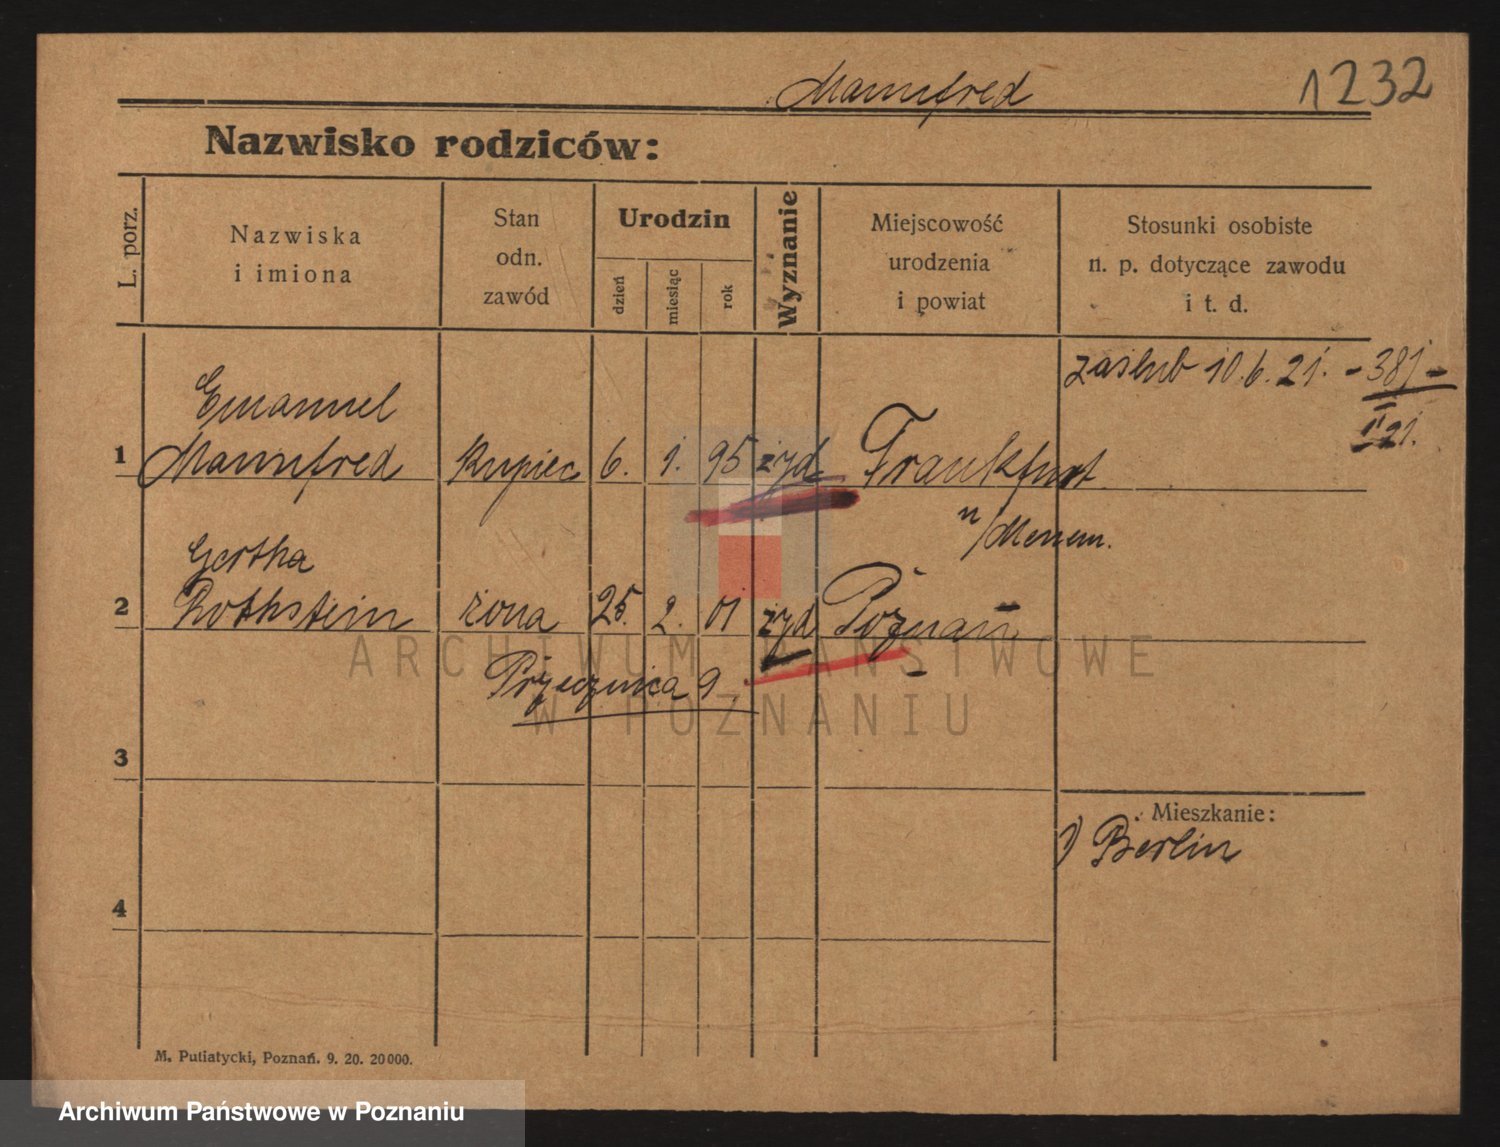 Mannfred
1232
Nazwisko rodziców:
L. porz.
Nazwiska
i imiona
Stan
odn.
zawód
Urodzin
dzień
miesiąc
rok
Wyznanie
Miejscowość
urodzenia
i powiat
Stosunki osobiste
n. p. dotyczące zawodu
i t. d.
zaślub 10.6.21. - 381 -
II 21.
Emanuel
1 Mannfred kupiec 6. 1. 95 żyd Frankfurt
n/Menem.
Gertha
2 Rothstein żona 25. 2. 01 żyd Poznań
Przecznica 9.
3
Mieszkanie:
1) Berlin
4
M. Putiatycki, Poznań. 9. 20. 20000.
ARCHIWUM PAŃSTWOWE
W POZNANIU
Archiwum Państwowe w Poznaniu